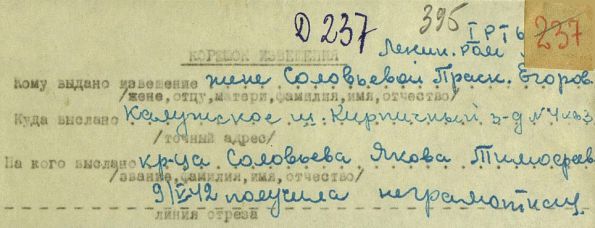 Д 237 395 I РТЬ 237
КОРЕШОК ИЗВЕЩЕНИЯ Ленин. РОМ
Кому выдано извещение жене Соловьевой Праск. Егоров
/жене, отцу, матери, фамилия, имя, отчество/
Куда выслано Калужское ш. Кирпичный з-д №
/точный адрес/
На кого выслано кр-ца Соловьева Якова Тимофеев
/звание, фамилия, имя, отчество/
9/V-42 получила неграмотн
линия отреза